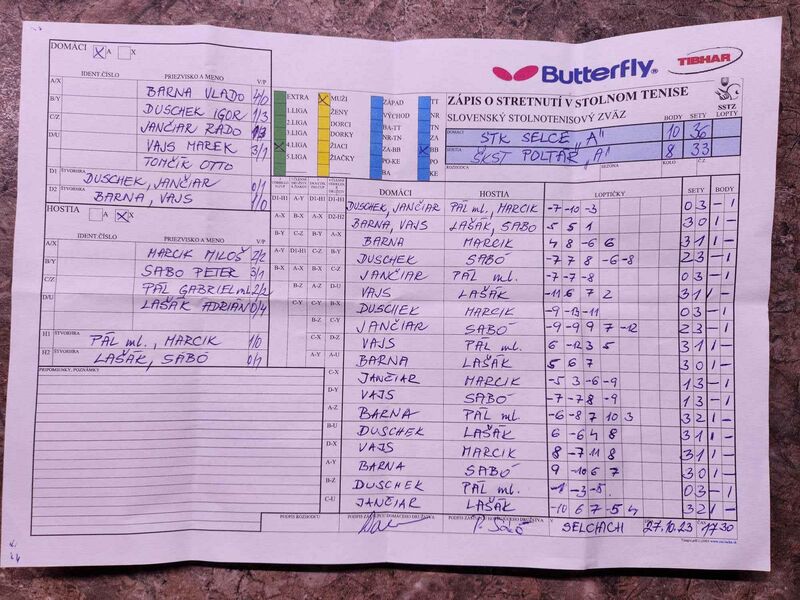 DOMÁCI X A X
Butterfly® TIBHAR
IDENT.ČÍSLO PRIEZVISKO A MENO V/P
A/X BARNA VLADO 4/0
B/Y DUSCHEK IGOR 1/3
C/Z JANČIAR RADO 1/3
D/U VAJS MAREK 3/1
TOMČÍK OTTO
D1 ŠTVORHRA DUSCHEK, JANČIAR 0/1
D2 ŠTVORHRA BARNA, VAJS 1/0
HOSTIA A X X
IDENT.ČÍSLO PRIEZVISKO A MENO V/P
A/X MARCIK MILOŠ 2/2
B/Y SABO PETER 3/1
C/Z PÁL GABRIEL ml. 2/2
D/U LAŠÁK ADRIÁN 0/4
H1 ŠTVORHRA PÁL ml., MARCIK 1/0
H2 ŠTVORHRA LAŠÁK, SABÓ 0/1
PRIPOMIENKY, POZNÁMKY
EXTRA X MUŽI ZÁPAD TT
1.LIGA ŽENY VÝCHOD NR
2.LIGA DORCI BA-TT TN
3.LIGA DORKY NR-TN ZA
X 4.LIGA ŽIACI ZA-BB X BB
5.LIGA ŽIAČKY PO-KE PO
BA KE
ZÁPIS O STRETNUTÍ V STOLNOM TENISE
SLOVENSKÝ STOLNOTENISOVÝ ZVÄZ SSTZ
BODY SETY LOPTY
DOMÁCI STK SELCE "A" 10 36
HOSTIA ŠKST POLTÁR "A" 8 33
ROZHODCA SEZÓNA KOLO Č.Z.
DOMÁCI HOSTIA LOPTIČKY SETY BODY
D1-H1 DUSCHEK, JANČIAR PÁL ml., MARCIK -7 -10 -3 0 3 - 1
D2-H2 BARNA, VAJS LAŠÁK, SABO 5 5 1 3 0 1 -
BARNA MARCIK 4 8 -6 6 3 1 1 -
DUSCHEK SABÓ -7 7 8 -6 -8 2 3 - 1
JANČIAR PÁL ml. -7 -7 -8 0 3 - 1
VAJS LAŠÁK -11 6 7 2 3 1 1 -
DUSCHEK MARCIK -9 -13 -11 0 3 - 1
JANČIAR SABÓ -9 -9 9 7 -12 2 3 - 1
VAJS PÁL ml. 6 -12 3 5 3 1 1 -
A-U BARNA LAŠÁK 5 6 7 3 0 1 -
C-X JANČIAR MARCIK -5 3 -6 -9 1 3 - 1
D-Y VAJS SABÓ -7 -7 8 -9 1 3 - 1
A-Z BARNA PÁL ml. -6 -8 7 10 3 3 2 1 -
B-U DUSCHEK LAŠÁK 6 -6 4 8 3 1 1 -
D-X VAJS MARCIK 8 -7 11 8 3 1 1 -
A-Y BARNA SABÓ 9 -10 6 7 3 0 1 -
B-Z DUSCHEK PÁL ml. -3 -5 0 3 - 1
C-U JANČIAR LAŠÁK -10 6 7 -5 4 3 2 1 -
PODPIS ROZHODCU PODPIS ZÁSTUPCU DOMÁCEHO DRUŽSTVA PODPIS ZÁSTUPCU HOSŤUJÚCEHO DRUŽSTVA V SELCIACH 27.10.23 17 30